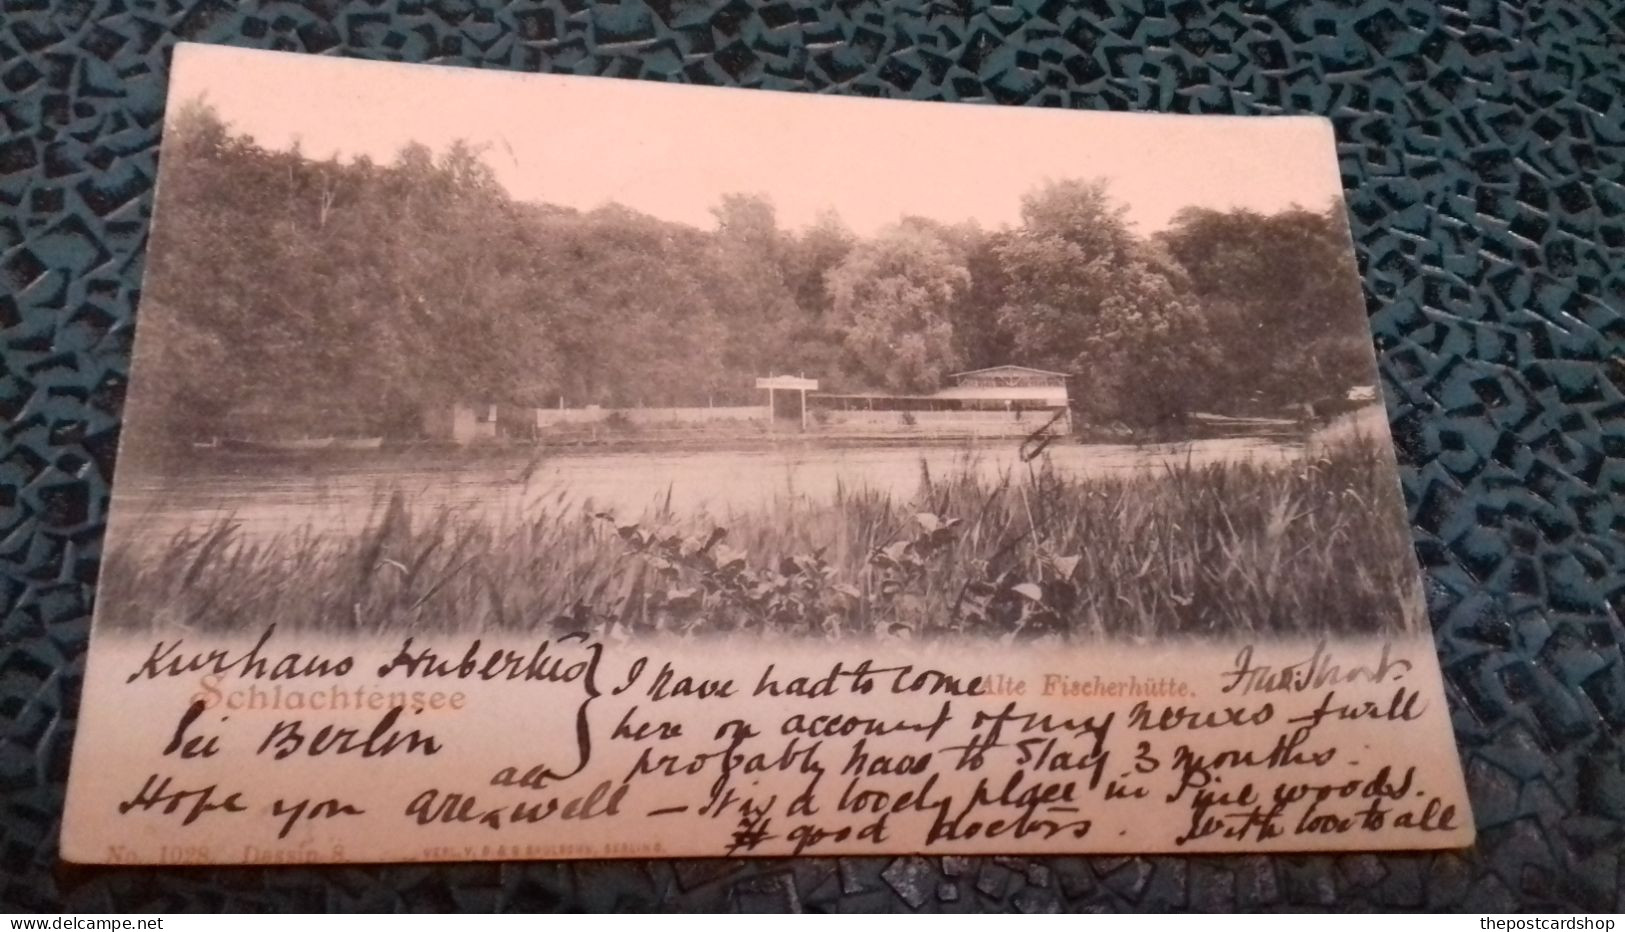 Kurhaus Hubertus
Schlachtensee
bei Berlin
Alte Fischerhütte.
I have had to come
here on account of my nerves + will
probably have to stay 3 months.
Hope you are all well – It is a lovely place in Pine woods.
+ good doctors. With love to all
No. 1028. Dessin 8.
thepostcardshop